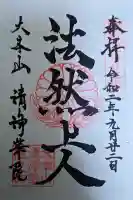 奉拝 令和二年九月廿二日
法然上人
大本山 清浄華院